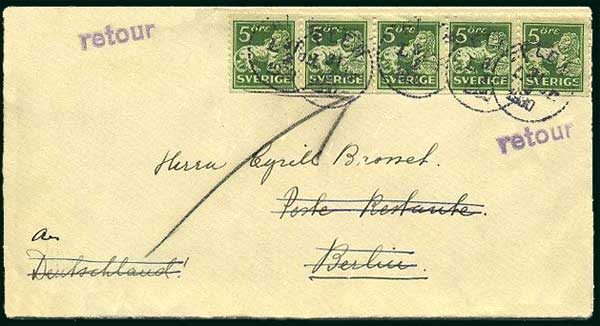 retour
5 öre 5 öre 5 öre 5 öre 5 öre
SVERIGE SVERIGE SVERIGE SVERIGE SVERIGE
1930
retour
Herrn Cyrill Brosset.
Poste Restante.
Berlin.
Deutschland!